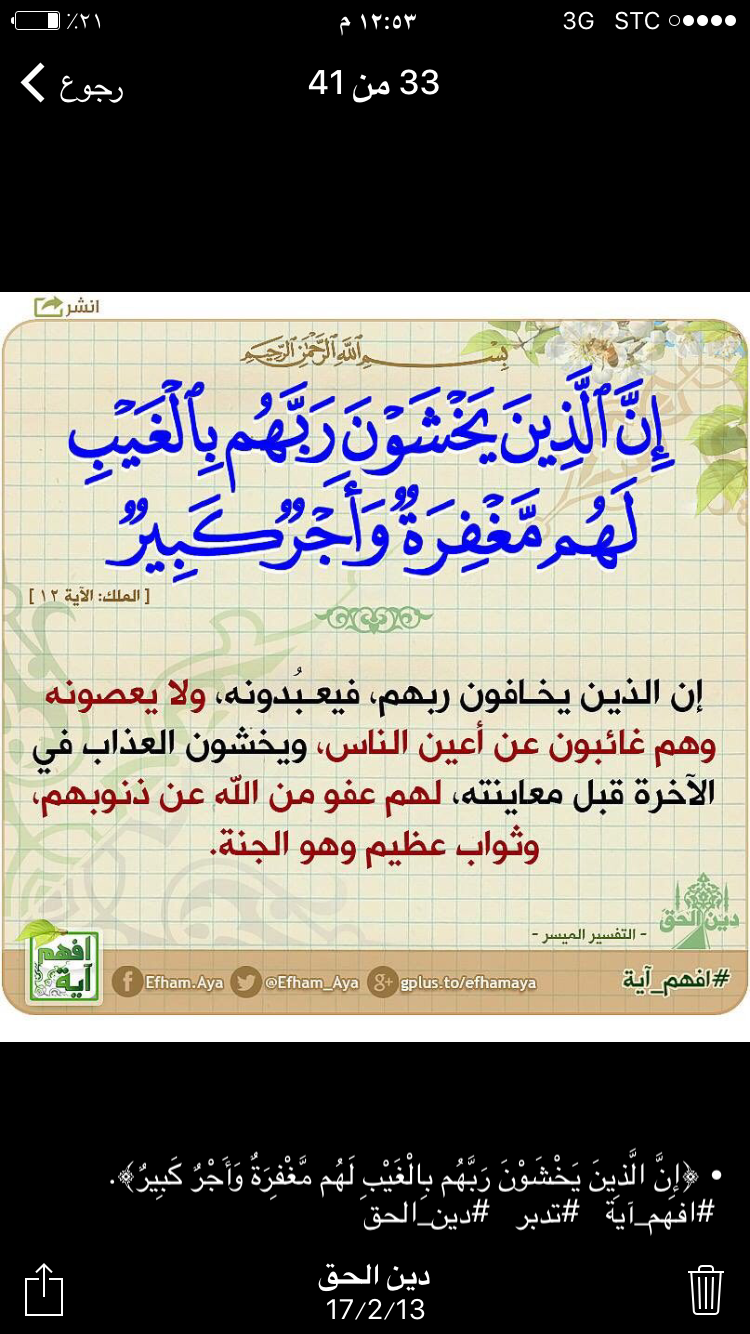 ٪٢١ ١٢:٥٣ م 3G STC
رجوع 33 من 41
انشر
بِسْمِ اللَّهِ الرَّحْمَٰنِ الرَّحِيمِ
إِنَّ ٱلَّذِينَ يَخْشَوْنَ رَبَّهُم بِٱلْغَيْبِ
لَهُم مَّغْفِرَةٌ وَأَجْرٌ كَبِيرٌ
[ الملك: الآية ١٢ ]
إن الذين يخافون ربهم، فيعبُدونه، ولا يعصونه
وهم غائبون عن أعين الناس، ويخشون العذاب في
الآخرة قبل معاينته، لهم عفو من الله عن ذنوبهم،
وثواب عظيم وهو الجنة.
دين الحق
- التفسير الميسر -
افهم
آية
Efham.Aya @Efham_Aya gplus.to/efhamaya #افهم_آية
• ﴿إِنَّ الَّذِينَ يَخْشَوْنَ رَبَّهُم بِالْغَيْبِ لَهُم مَّغْفِرَةٌ وَأَجْرٌ كَبِيرٌ﴾.
#افهم_آية #تدبر #دين_الحق
دين الحق
17/2/13